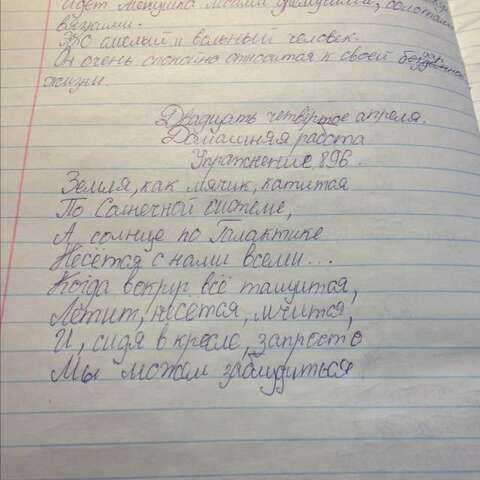 Идет мельника лесами дремучими, болотами
вязкими.
Это смелый и вольный человек.
Он очень спокойно относится к своей бездарной
жизни.
Двадцать четвёртое апреля.
Домашняя работа
Упражнение 896.
Земля, как мячик, катится
По Солнечной системе,
А солнце по Галактике
Несётся с нами всеми...
Когда вокруг всё тащится,
Летит, несётся, мчится,
И, сидя в кресле, запросто
Мы можем заблудиться